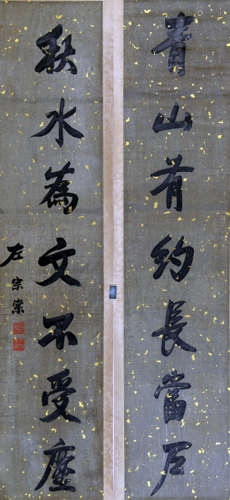 青山有约長當户
秋水為文不受塵
左宗棠